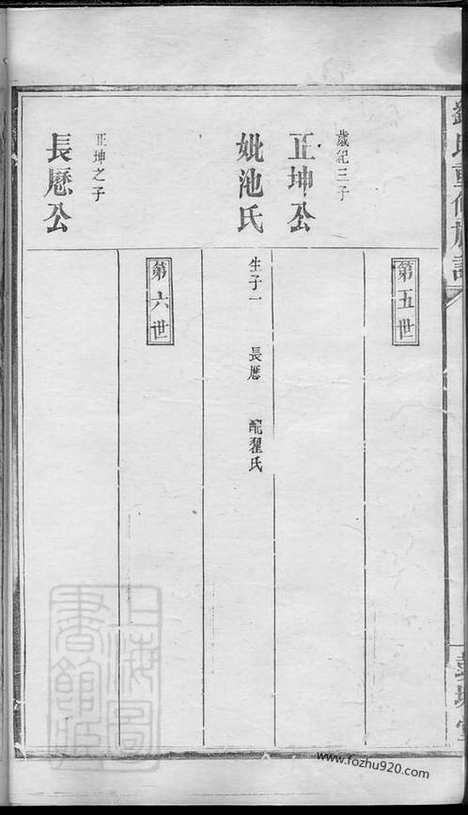 第五世
歲紀三子
正坤公
妣池氏
生子一 長厯 配翟氏
第六世
正坤之子
長厯公
氏重修族譜
上海圖書館藏
www.fozhu920.com